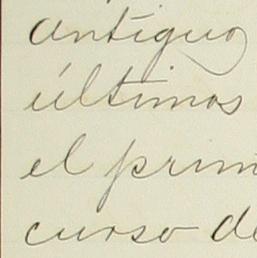 antiguo
últimos
el prim
curso de